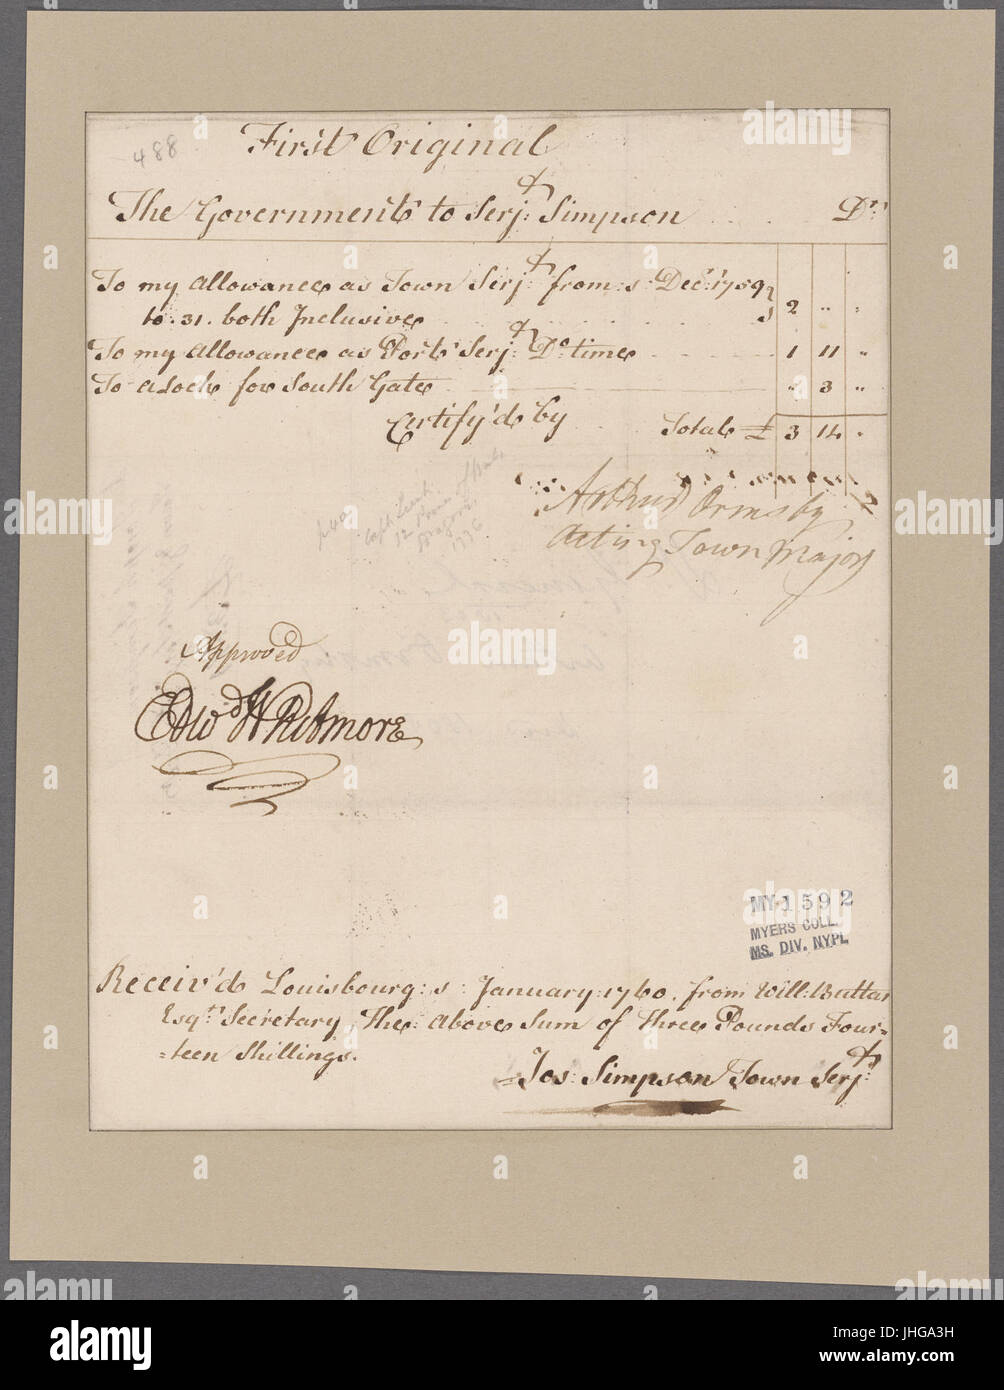 488
First Original
The Government to Serj:t Simpson Dr
To my Allowance as Town Serj:t from :1: Dec:r 1759
to .31. both Inclusive 2 „ „
To my Allowance as Fort Serj:t Do time 1 11 „
To a Lock for South Gate „ 3 „
Certify'd by Total £ 3 14 „
Arthur Ormsby
Acting Town Major
Capt Lieut
1736
Approved
Edwd Whitmore
MY 1592
MYERS COLL.
MS. DIV. NYPL
Receiv'd Louisbourg : 1 : January : 1760, from Will: Buttar
Esqr: Secretary, The Above Sum of Three Pounds Four=
=teen Shillings.
Jos: Simpson Town Serj:t
alamy
Image ID: JHGA3H
www.alamy.com